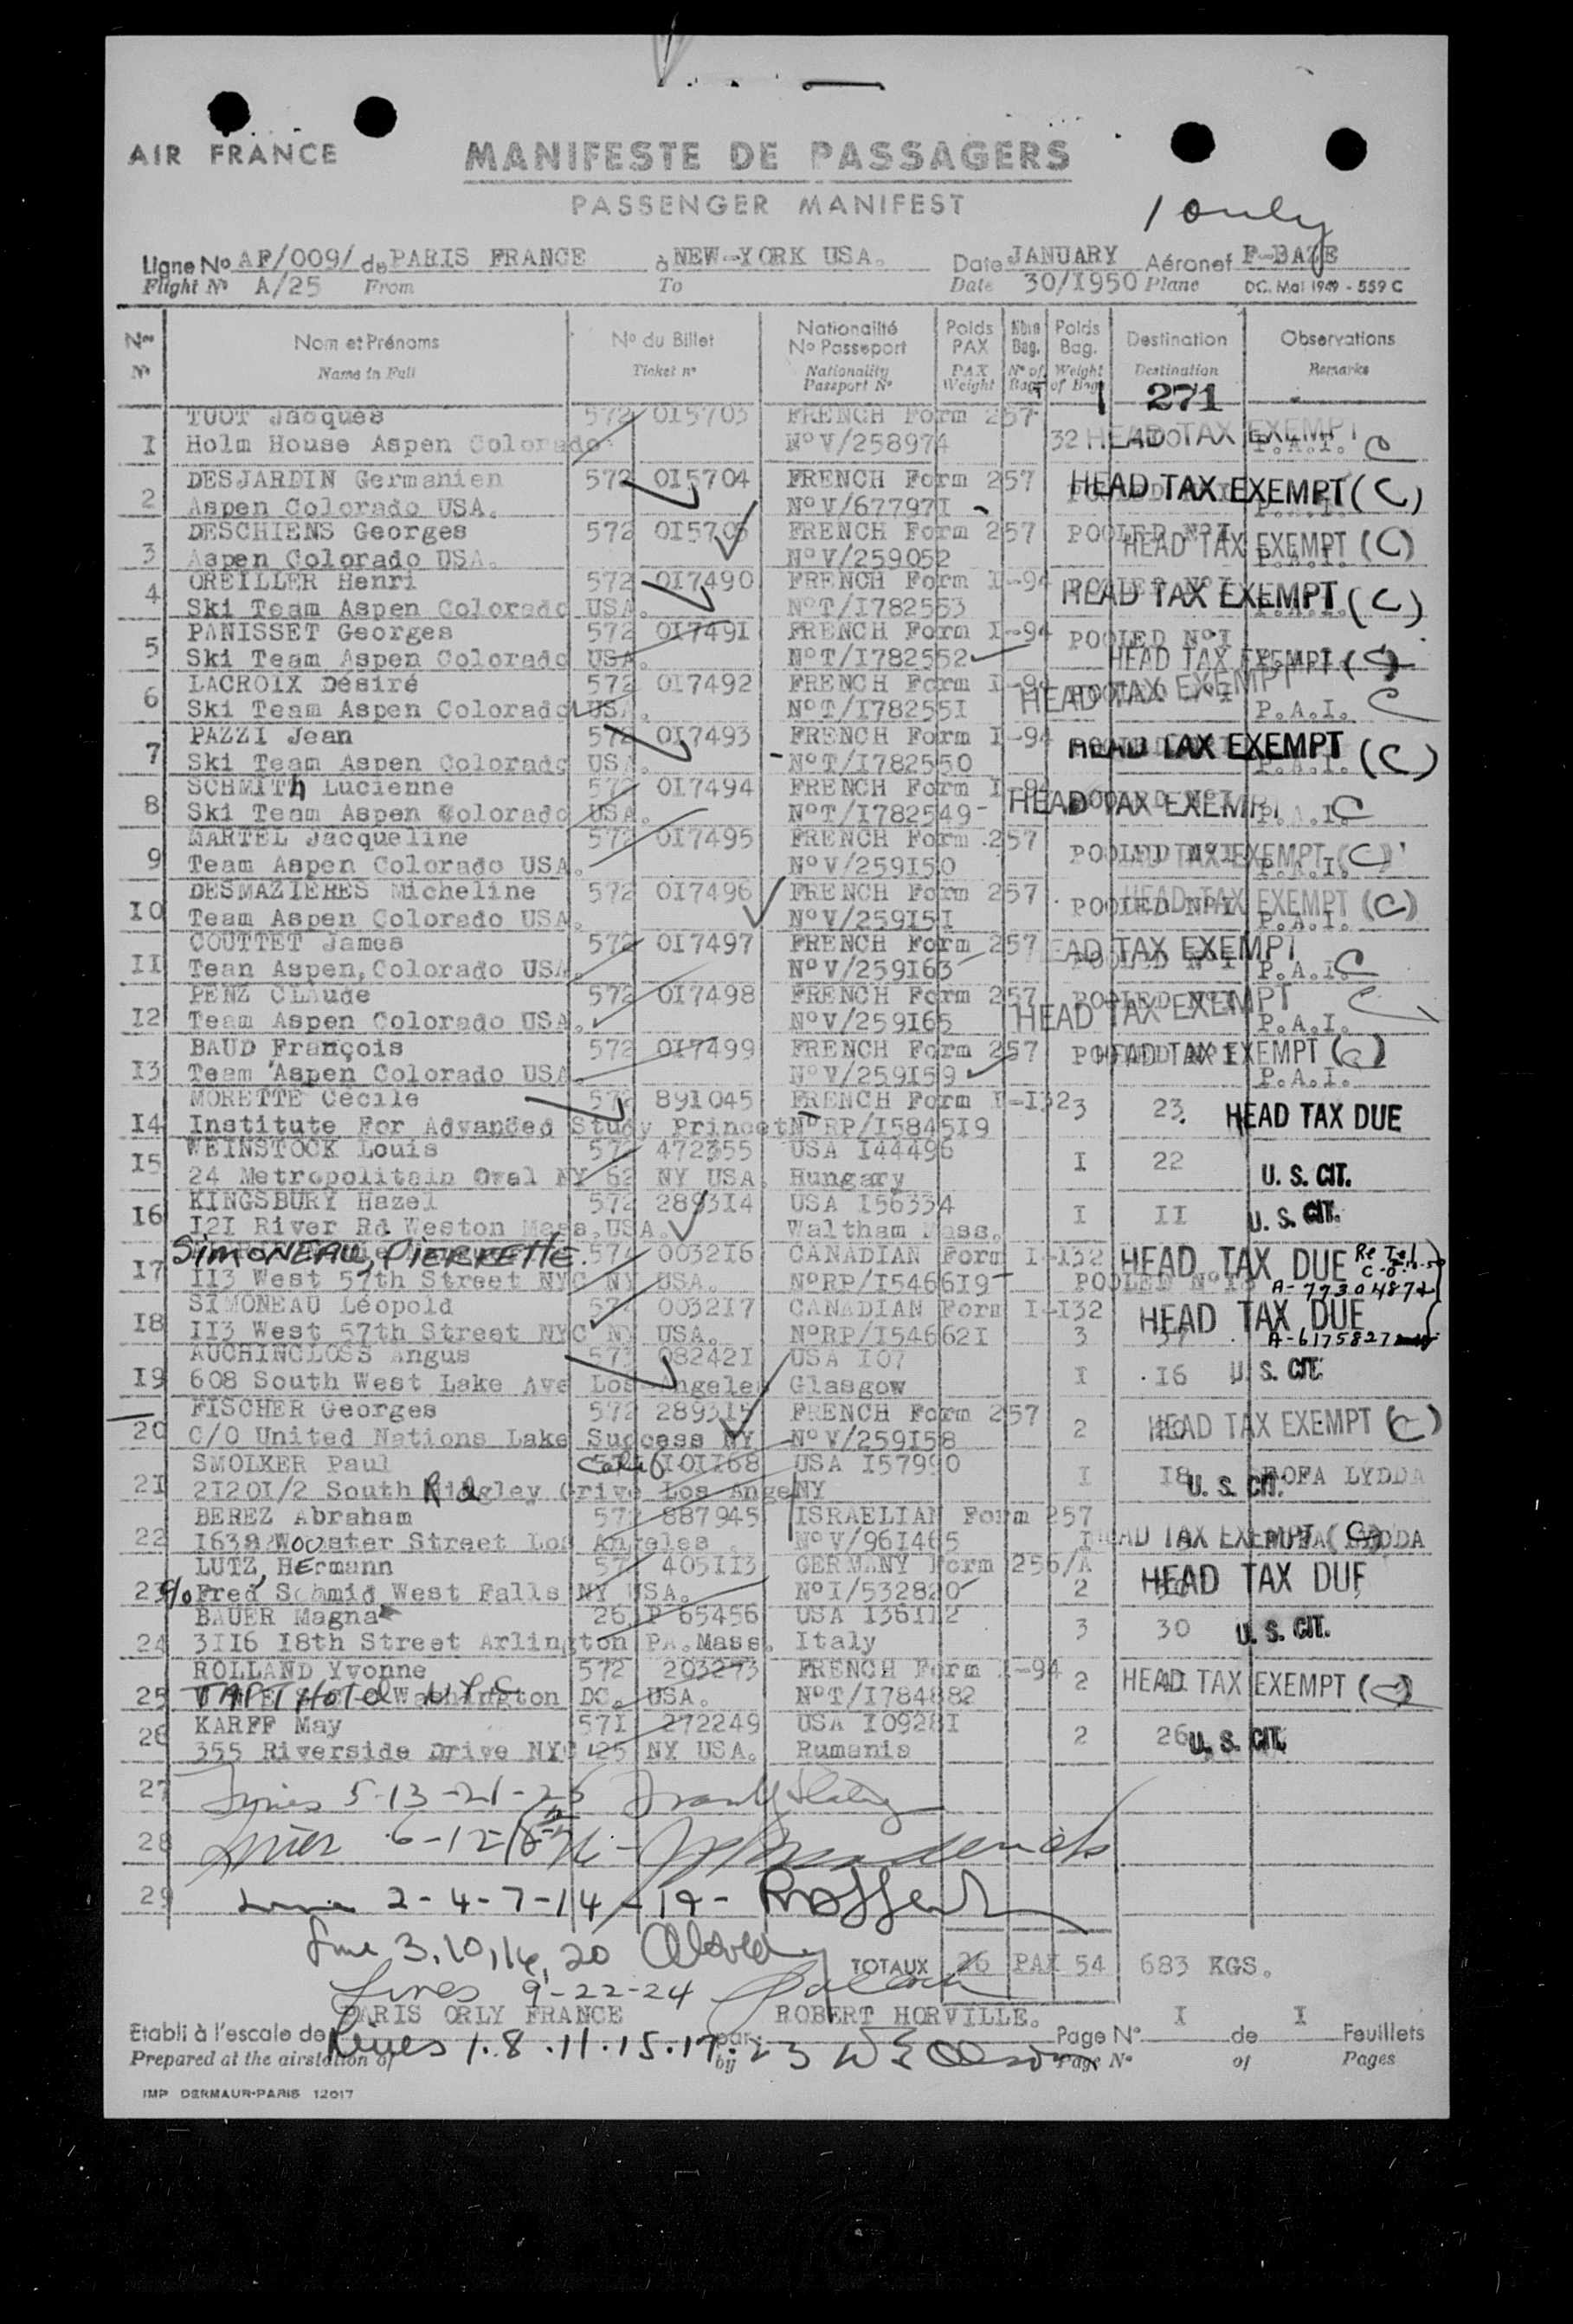 AIR FRANCE
MANIFESTE DE PASSAGERS
PASSENGER MANIFEST
1 only
Ligne No AF/009/ de PARIS FRANCE à NEW-YORK USA. Date JANUARY Aéronef F-BAZE
Flight No A/25 From To Date 30/I950 Plane DC. Mai 1949 - 559 C
Nos Nom et Prénoms No du Billet Nationalité No Passeport Poids PAX Nbre Bag. Poids Bag. Destination Observations
No Name in Full Ticket no Nationality Passport No PAX Weight No of Bags Weight of Bag Destination Remarks
271
TUOT Jacques 572 0I5703 FRENCH Form 257
I Holm House Aspen Colorado No V/258974 32 HEAD TAX EXEMPT P.A.I. C
DESJARDIN Germanien 572 0I5704 FRENCH Form 257
2 Aspen Colorado USA. No V/67797I HEAD TAX EXEMPT (C) P.A.I.
DESCHIENS Georges 572 0I5705 FRENCH Form 257 POOLED NoI
3 Aspen Colorado USA. No V/259052 HEAD TAX EXEMPT (C) P.A.I.
OREILLER Henri 572 0I7490 FRENCH Form I-94 POOLED NoI
4 Ski Team Aspen Colorado USA. NoT/I782553 HEAD TAX EXEMPT (C) P.A.I.
PANISSET Georges 572 0I749I FRENCH Form I-94 POOLED NoI
5 Ski Team Aspen Colorado USA. NoT/I782552 HEAD TAX EXEMPT (C) P.A.I.
LACROIX Désiré 572 0I7492 FRENCH Form I-94
6 Ski Team Aspen Colorado USA. NoT/I78255I HEAD TAX EXEMPT P.A.I. C
PAZZI Jean 572 0I7493 FRENCH Form I-94
7 Ski Team Aspen Colorado USA. NoT/I782550 HEAD TAX EXEMPT (C) P.A.I.
SCHMITh Lucienne 572 0I7494 FRENCH Form I-94
8 Ski Team Aspen Colorado USA. NoT/I782549 HEAD TAX EXEMPT P.A.I. C
MARTEL Jacqueline 572 0I7495 FRENCH Form 257
9 Team Aspen Colorado USA. No V/259I50 POOLED NoI HEAD TAX EXEMPT (C) P.A.I.
DESMAZIERES Micheline 572 0I7496 FRENCH Form 257
I0 Team Aspen Colorado USA. No V/259I5I POOLED NoI HEAD TAX EXEMPT (C) P.A.I.
COUTTET James 572 0I7497 FRENCH Form 257 HEAD TAX EXEMPT
II Tean Aspen,Colorado USA. No V/259I63 POOLED NoI P.A.I. C
PENZ CLAude 572 0I7498 FRENCH Form 257 POOLED NoI
I2 Team Aspen Colorado USA. No V/259I65 HEAD TAX EXEMPT P.A.I. C
BAUD François 572 0I7499 FRENCH Form 257 POOLED NoI
I3 Team Aspen Colorado USA. No V/259I59 HEAD TAX EXEMPT (C) P.A.I.
MORETTE Cécile 572 89I045 FRENCH Form I-I32 3 23. HEAD TAX DUE
I4 Institute For Advanced Study Princet NoRP/I5845I9
WEINSTOCK Louis 572 472355 USA I44496 I 22
I5 24 Metropolitain Oval NY 62 NY USA. Hungary U. S. CIT.
KINGSBURY Hazel 572 2893I4 USA I56334 I II
I6 I2I River Rd Weston Mass.USA. Waltham Mass. U. S. CIT.
SIMONEAU, PIERRETTE. 572 0032I6 CANADIAN Form I-I32 HEAD TAX DUE
I7 II3 West 57th Street NYC NY USA. NoRP/I5466I9 POOLED NoI8 A-7730487
SIMONEAU Léopold 572 0032I7 CANADIAN Form I-I32 HEAD TAX DUE
I8 II3 West 57th Street NYC NY USA. NoRP/I54662I 3 37 A-6175827
AUCHINCLOSS Angus 573 08242I USA I07
I9 608 South West Lake Ave Los Angeles Glasgow I I6 U. S. CIT.
FISCHER Georges 572 2893I5 FRENCH Form 257
20 C/O United Nations Lake Success NY No V/259I58 2 HEAD TAX EXEMPT (C)
SMOLKER Paul Calif I0II68 USA I57990
2I 2I20I/2 South Ridgley Drive Los Ange NY I I8 U. S. CIT. ROFA LYDDA
BEREZ Abraham 572 887945 ISRAELIAN Form 257
22 I638 Wooster Street Los Angeles No V/96I465 I HEAD TAX EXEMPT (C) LYDDA
LUTZ, HErmann 57 405II3 GERMANY Form 256/A
23 c/o Fred Schmid West Falls NY USA. NoI/532820 2 HEAD TAX DUE
BAUER Magna 26 P 65456 USA I36II2
24 3II6 I8th Street Arlington PA.Mass. Italy 3 30 U. S. CIT.
ROLLAND Yvonne 572 203273 FRENCH Form I-94
25 TAFT Hotel NYC Washington DC. USA. NoT/I784882 2 HEAD TAX EXEMPT (C)
KARFF May 57I 272249 USA I0928I
26 355 Riverside Drive NYC 25 NY USA. Rumania 2 26 U. S. CIT.
27 Lines 5-13-21-25
28 Lines 6-12-18
29 Line 2-4-7-14-19-
Line 3,10,16,20
TOTAUX 26 PAX 54 683 KGS.
Lines 9-22-24
PARIS ORLY FRANCE ROBERT HORVILLE. I I
Etabli à l'escale de par Page No de Feuillets
Lines 1.8.11.15.17.23 W E Olson
Prepared at the airstation of by Page No of Pages
IMP DERMAUR-PARIS 12017